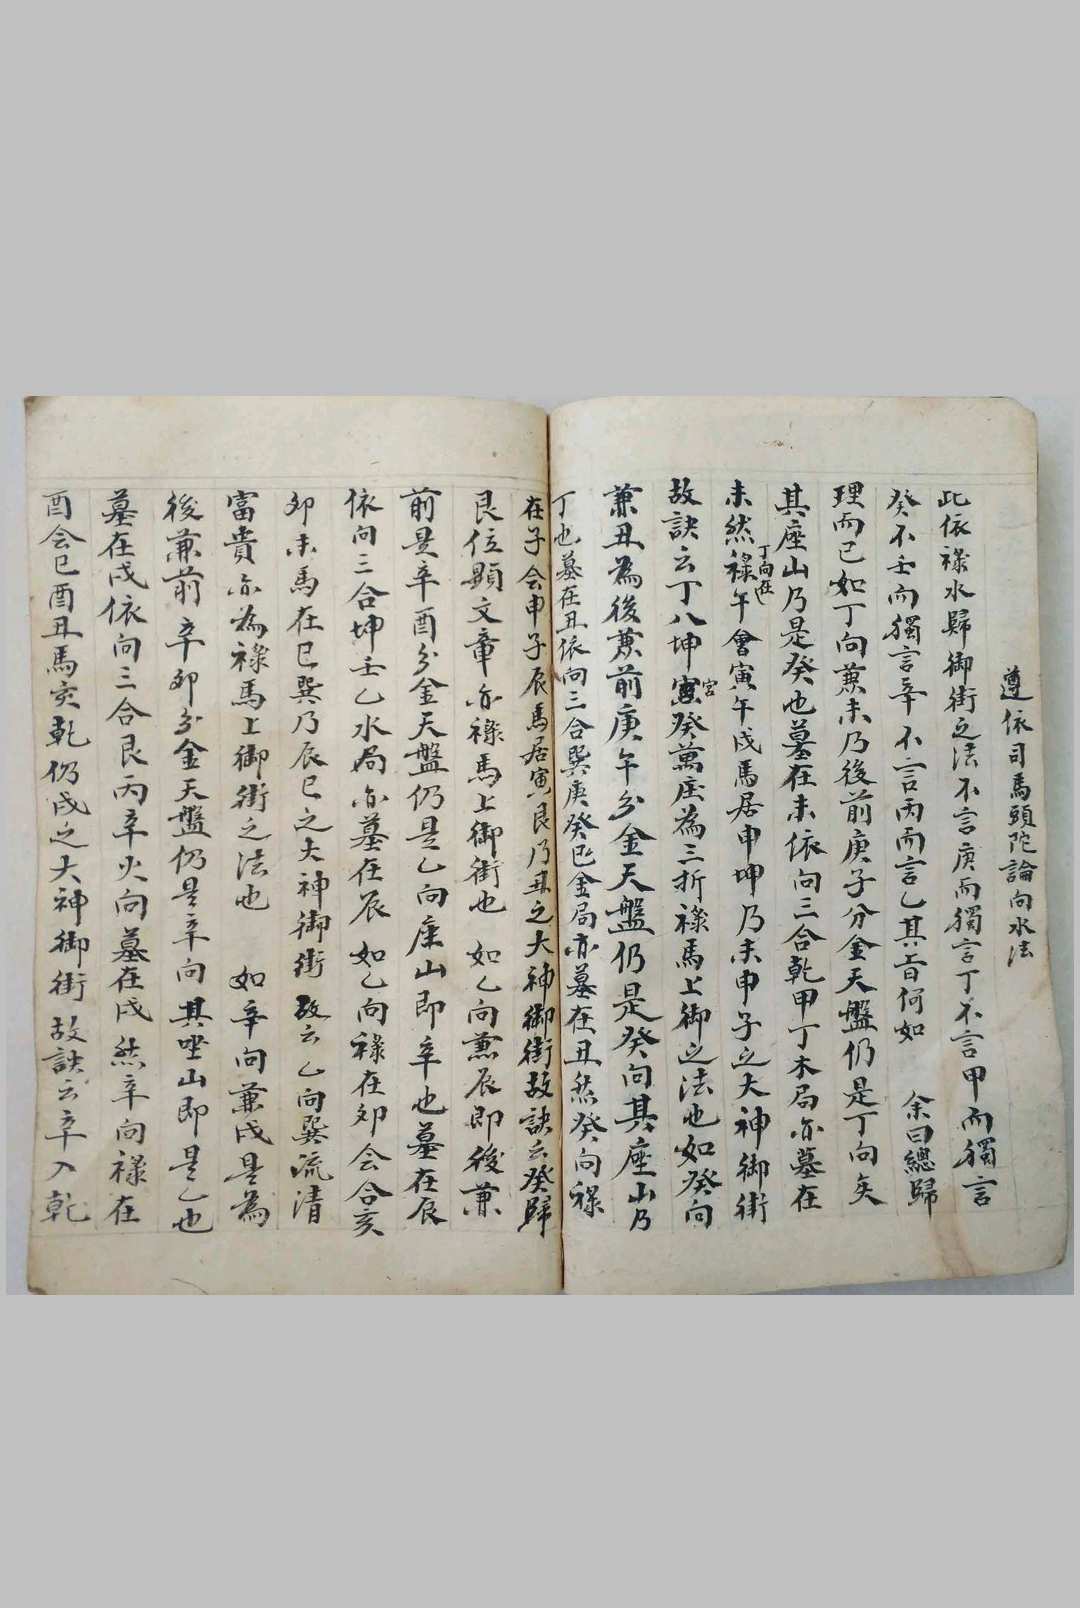 遵依司馬頭陀論向水法
此依祿水歸御街之法不言庚而獨言丁不言甲而獨言
癸不壬而獨言辛不言丙而言乙其旨何如　余曰總歸
理而已如丁向兼未乃後前庚子分金天盤仍是丁向矣
其座山乃是癸也墓在未依向三合乾甲丁木局亦墓在
未然祿午會寅午戌馬居申坤乃未申子之大神御街
丁向在
故訣云丁入坤癸萬庄為三折祿馬上御之法也如癸向
宮
兼丑為後兼前庚午分金天盤仍是癸向其座山乃
丁也墓在丑依向三合巽庚癸巳金局亦墓在丑然癸向祿
在子会申子辰馬居寅艮乃丑之大神御街故訣云癸歸
艮位顯文章亦祿馬上御街也　如乙向兼辰即後兼
前是辛酉分金天盤仍是乙向座山即辛也墓在辰
依向三合坤壬乙水局亦墓在辰　如乙向祿在卯会合亥
卯未馬在巳巽乃辰巳之大神御街故云乙向巽流清
富貴亦為祿馬上御街之法也　如辛向兼戌是為
後兼前辛卯分金天盤仍是辛向其唑山即是乙也
墓在戌依向三合艮丙辛火向墓在戌然辛向祿在
酉会巳酉丑馬亥乾仍戌之大神御街故訣云辛入乾